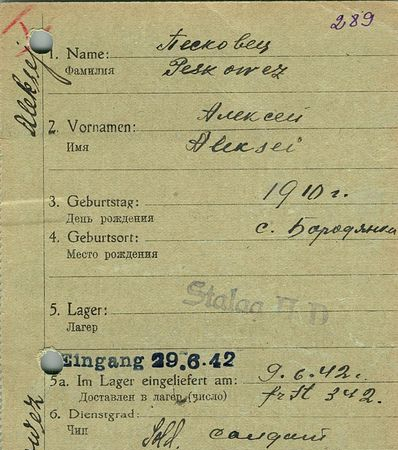 289
Песковец
1. Name:
Фамилия
Peskowez
Aleksej
Алексей
2. Vornamen:
Имя
Aleksei
3. Geburtstag: 1910 г.
День рождения
4. Geburtsort: с. Бородянка
Место рождения
Stalag II D
5. Lager:
Лагерь
Eingang 29.6.42
5a. Im Lager eingeliefert am: 9.6.42.
Доставлен в лагерь (число) 342.
6. Dienstgrad:
Чин
Sold. солдат